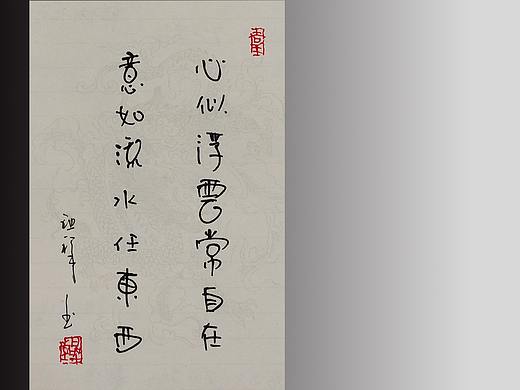 心似浮雲常自在
意如流水任東西